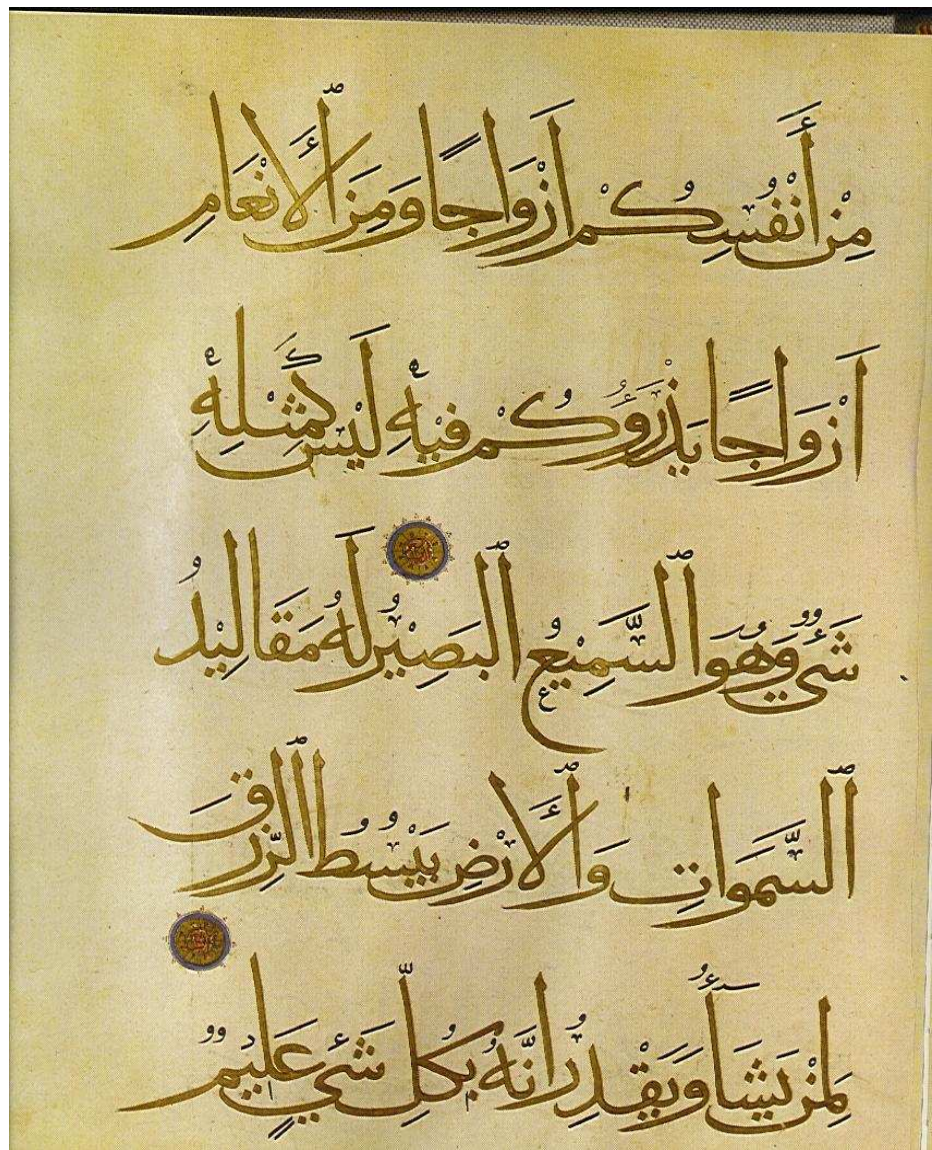 مِنْ أَنْفُسِكُمْ أَزْوَاجًا وَمِنَ ٱلْأَنْعَامِ
أَزْوَاجًا يَذْرَؤُكُمْ فِيهِ لَيْسَ كَمِثْلِهِ
شَيْءٌ وَهُوَ ٱلسَّمِيعُ ٱلْبَصِيرُ لَهُ مَقَالِيدُ
ٱلسَّمَوَاتِ وَٱلْأَرْضِ يَبْسُطُ ٱلرِّزْقَ
لِمَنْ يَشَآءُ وَيَقْدِرُ إِنَّهُ بِكُلِّ شَيْءٍ عَلِيمٌ